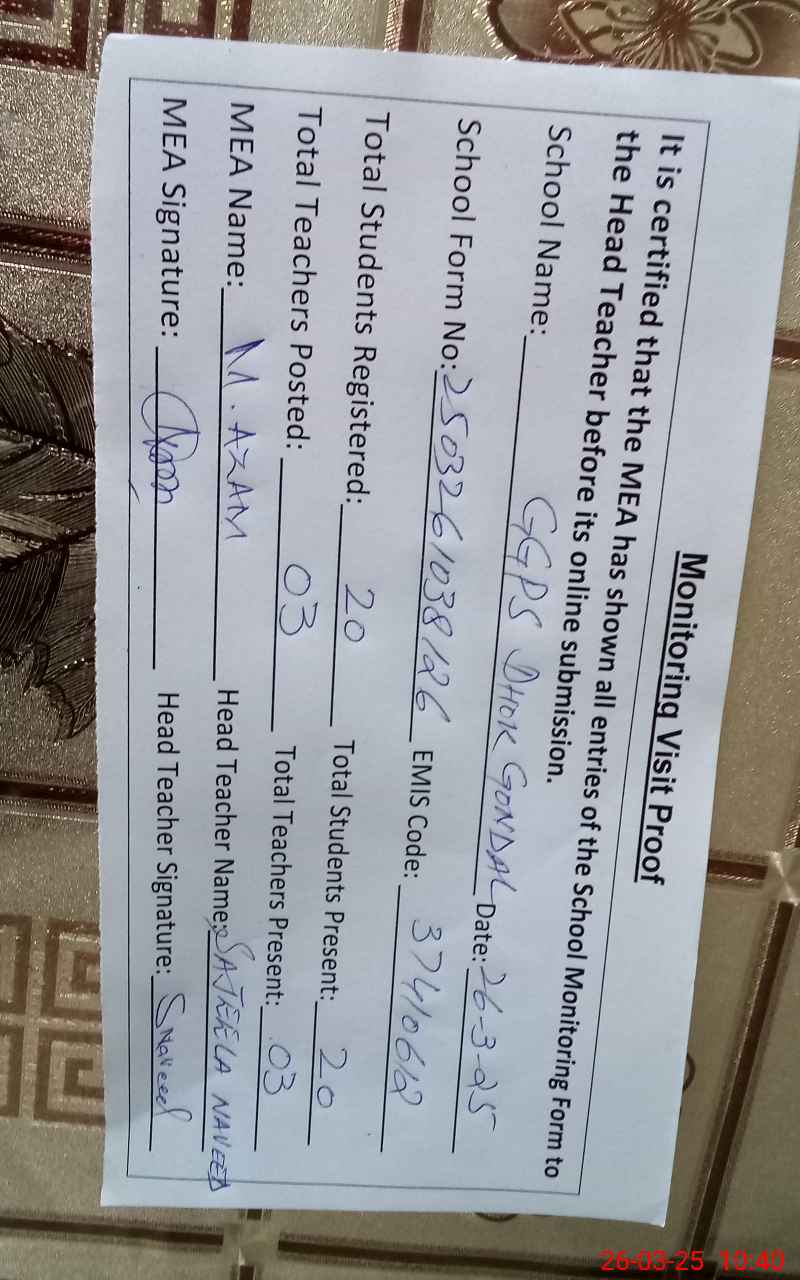 Monitoring Visit Proof
It is certified that the MEA has shown all entries of the School Monitoring Form to
the Head Teacher before its online submission.
School Name: GGPS DHOK GONDAL Date: 26-3-25
School Form No: 2503261038126 EMIS Code: 37410612
Total Students Registered: 20 Total Students Present: 20
Total Teachers Posted: 03 Total Teachers Present: 03
MEA Name: M. AZAM Head Teacher Name: SAJEELA NAVEED
MEA Signature: Head Teacher Signature: SNaveed
26-03-25 10:40